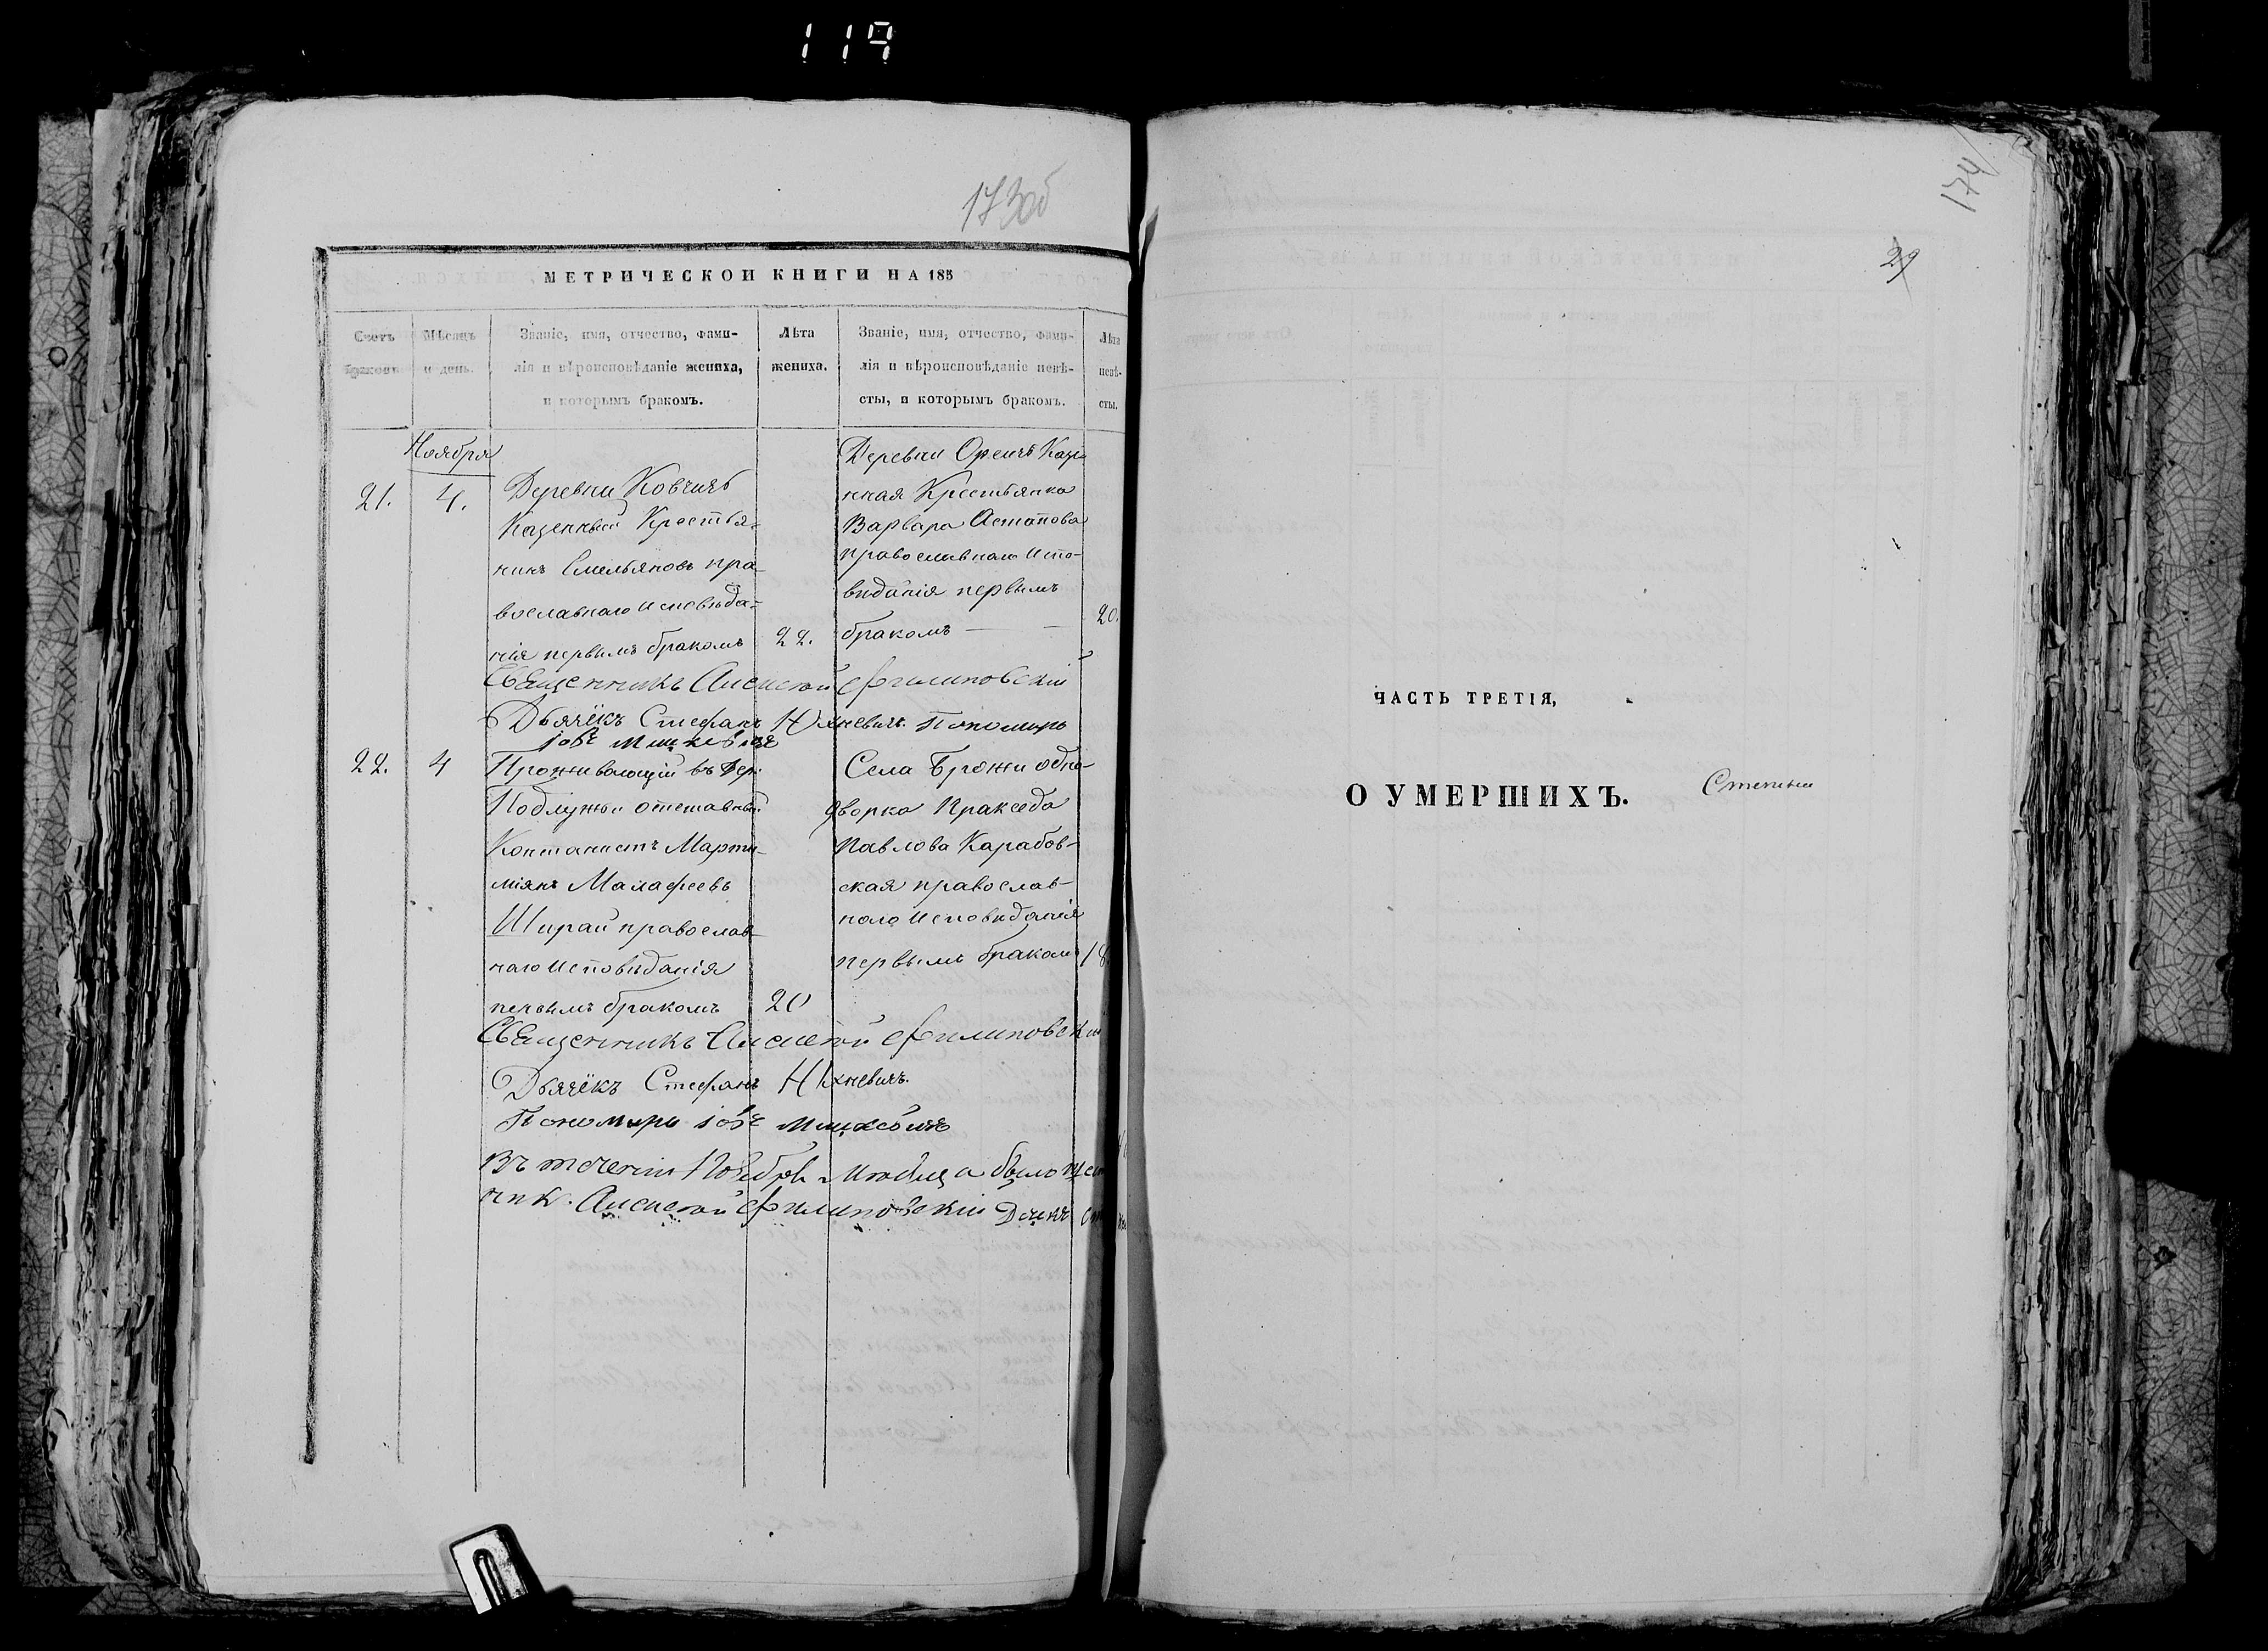 119
173об
МЕТРИЧЕСКОЙ КНИГИ НА 185
Счетъ браковъ.
Мѣсяцъ и день.
Званіе, имя, отчество, фами-
лія и вѣроисповѣданіе жениха,
и которымъ бракомъ.
Лѣта
жениха.
Званіе, имя, отчество, фами-
лія и вѣроисповѣданіе невѣ-
сты, и которымъ бракомъ.
Лѣта
невѣ-
сты.
Ноября
21. 4.
Деревни Ковчичъ
Казенный Крестья-
нинъ Емельяновъ пра-
вославнаго Исповѣда-
нія первымъ бракомъ 22.
Деревни Орсичъ Кази-
нная Крестьянка
Варвара Астапова
православнаго Испо-
виданія первымъ
бракомъ — — 20.
Священникъ Алексѣй Филиповскій
Дьячёкъ Стефанъ Юхневичъ. Пономарь
Іовъ Мицкевичъ
22. 4
Проживающій въ Дер.
Подлужьи отставный
Кантонистъ Марти-
міянъ Малафеевъ
Ширай православ-
наго Исповиданія
первымъ бракомъ 20
Села Брожи одно-
дворка Пракседа
Павлова Карабов-
ская православ-
наго Исповиданія
первымъ бракомъ 18.
Священникъ Алексѣй Филиповскій
Дьячёкъ Стефанъ Юхневичъ.
Пономарь Іовъ Мицкевичъ
Въ теченіи Ноября Месяца было
Филиповскій
174
29
ЧАСТЬ ТРЕТІЯ,
О УМЕРШИХЪ.